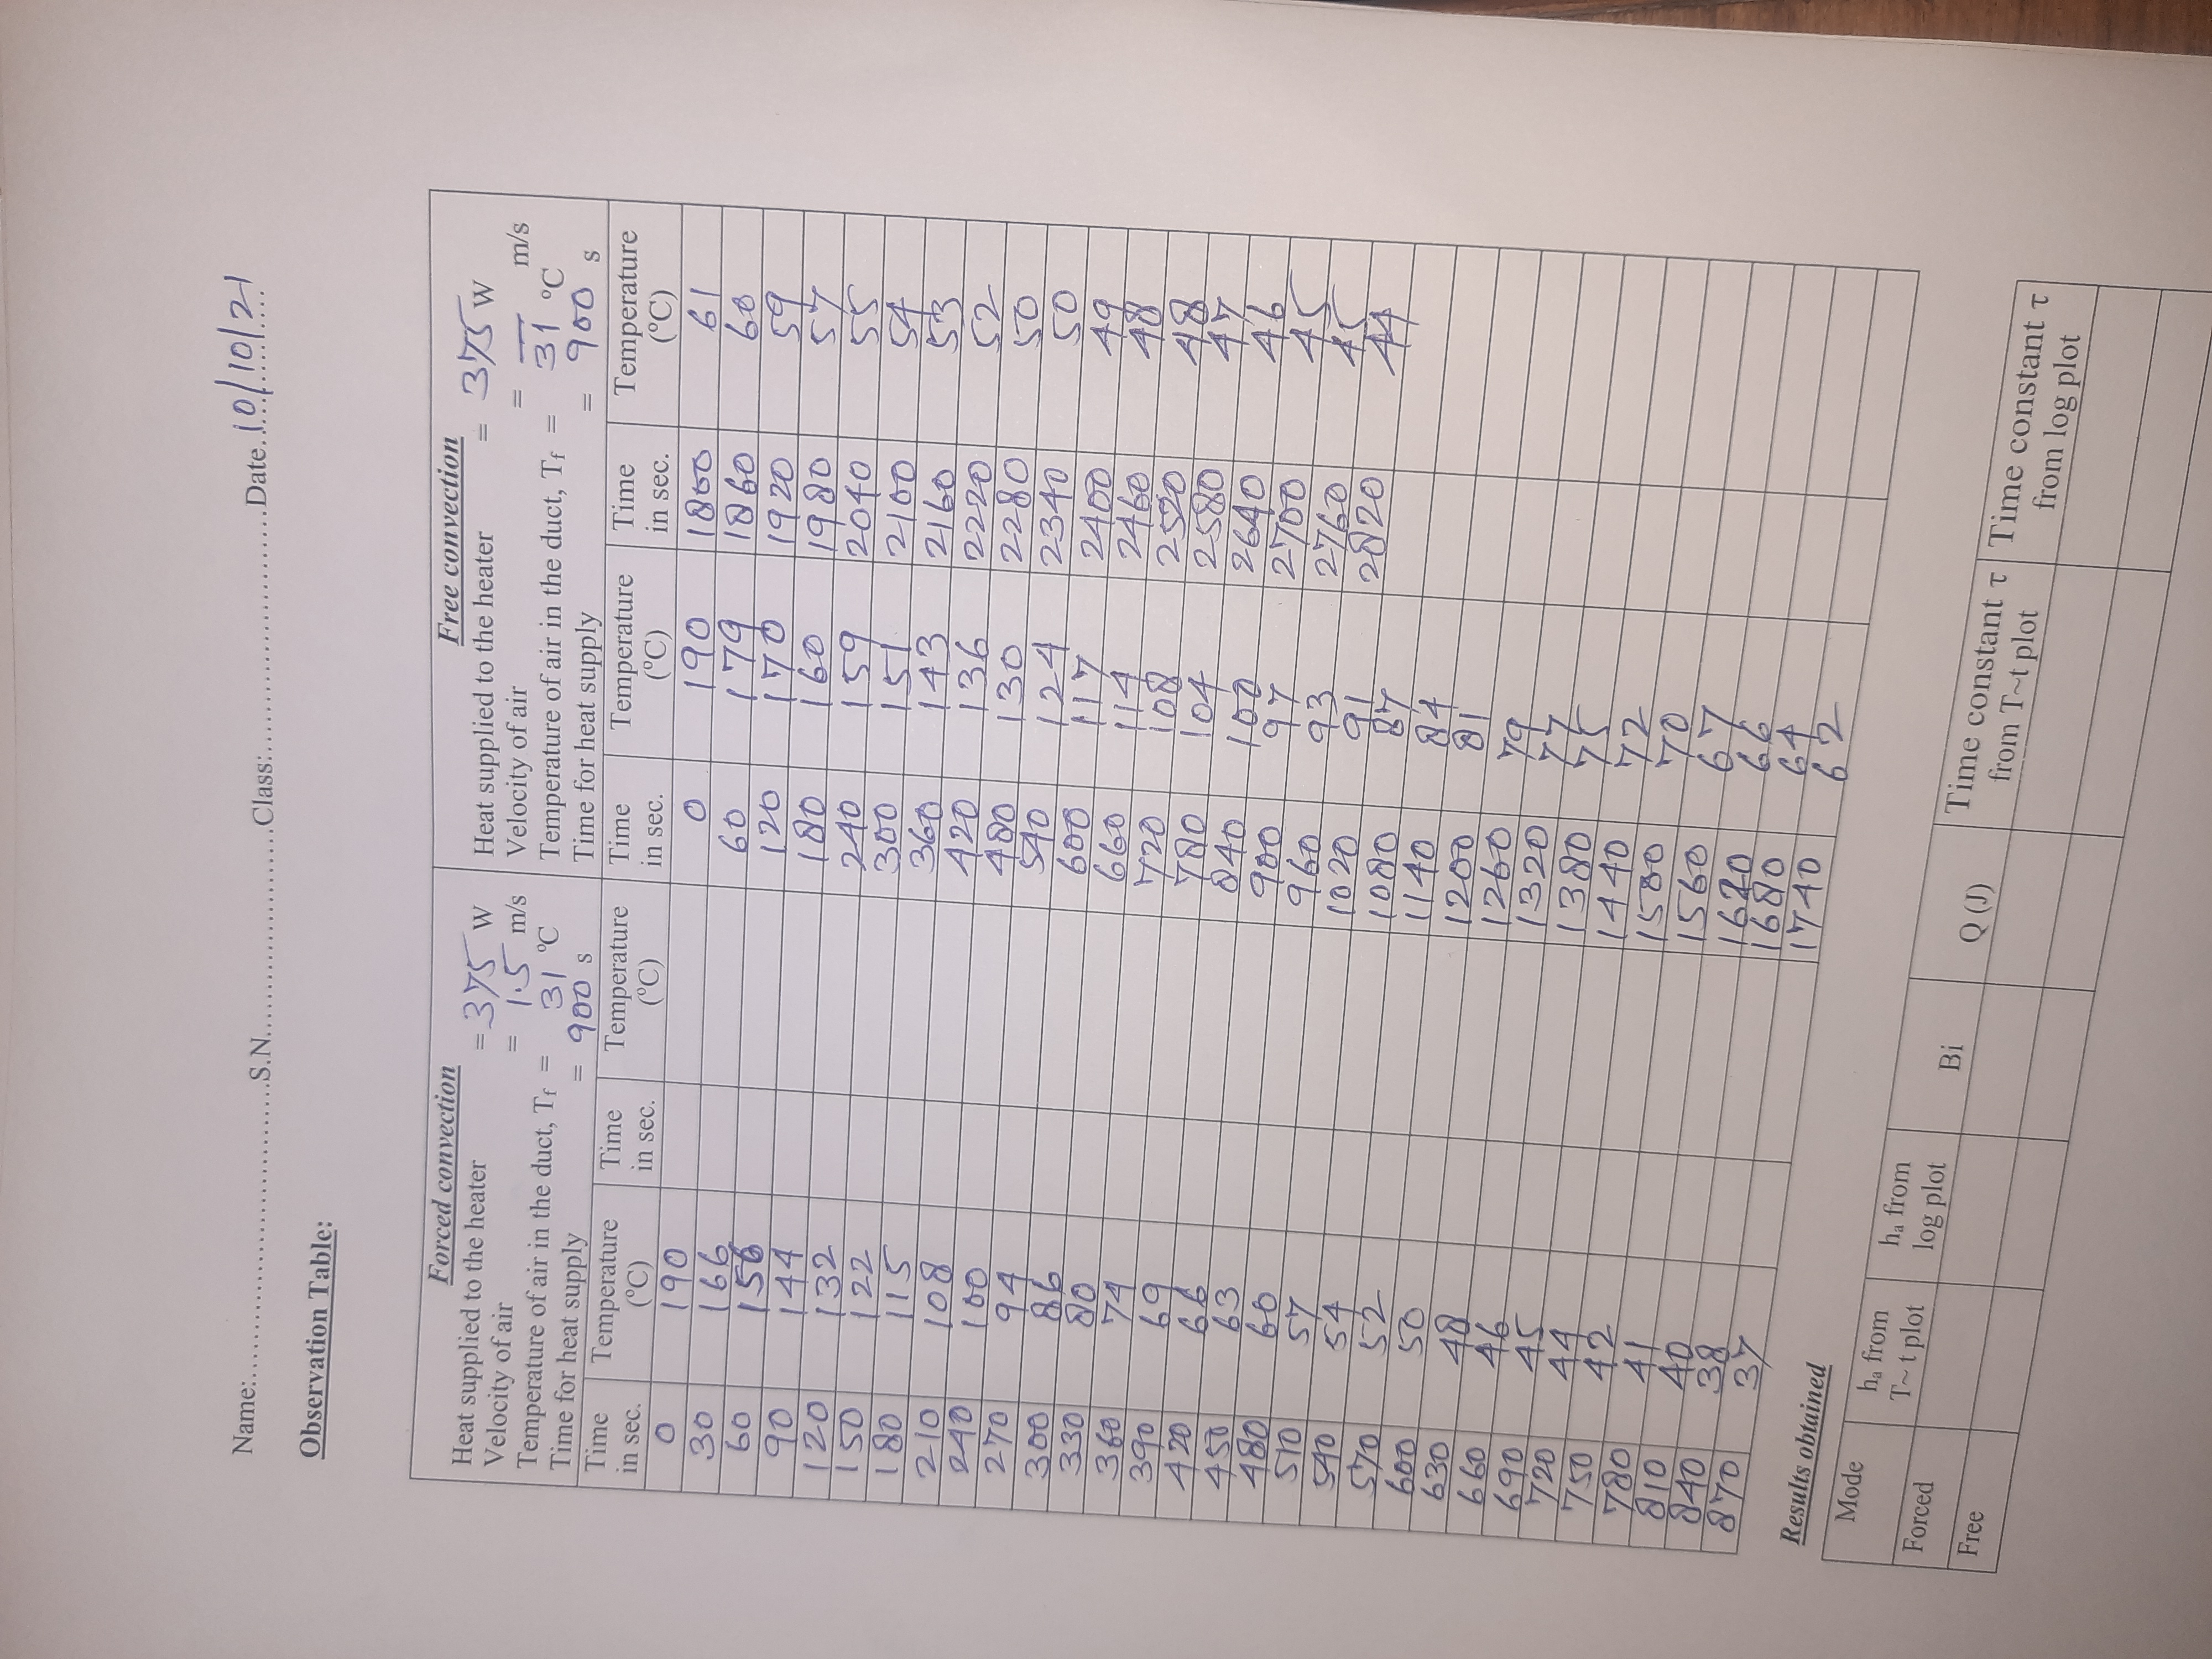 Name:..............................S.N......................Class:.........................Date. 10/10/21
Observation Table:
Forced convection
Heat supplied to the heater = 375 W
Velocity of air = 1.5 m/s
Temperature of air in the duct, Tf = 31 °C
Time for heat supply = 900 s
Free convection
Heat supplied to the heater = 375 W
Velocity of air = — m/s
Temperature of air in the duct, Tf = 31 °C
Time for heat supply = 900 s
Time in sec. Temperature (°C) Time in sec. Temperature (°C) Time in sec. Temperature (°C) Time in sec. Temperature (°C)
0 190 0 190 1800 61
30 166 60 179 1860 60
60 156 120 170 1920 59
90 144 180 160 1980 57
120 132 240 159 2040 55
150 122 300 151 2100 54
180 115 360 143 2160 53
210 108 420 136 2220 52
240 100 480 130 2280 50
270 94 540 124 2340 50
300 86 600 117 2400 49
330 80 660 114 2460 48
360 74 720 108 2520 48
390 69 780 104 2580 47
420 66 840 100 2640 46
450 63 900 97 2700 45
480 60 960 93 2760 45
510 57 1020 91 2820 44
540 54 1080 87
570 52 1140 84
600 50 1200 81
630 48 1260 79
660 46 1320 77
690 45 1380 75
720 44 1440 72
750 42 1500 70
780 41 1560 67
810 40 1620 66
840 38 1680 64
870 37 1740 62
Results obtained
Mode ha from T~ t plot ha from log plot Bi Q (J) Time constant τ from T~t plot Time constant τ from log plot
Forced
Free